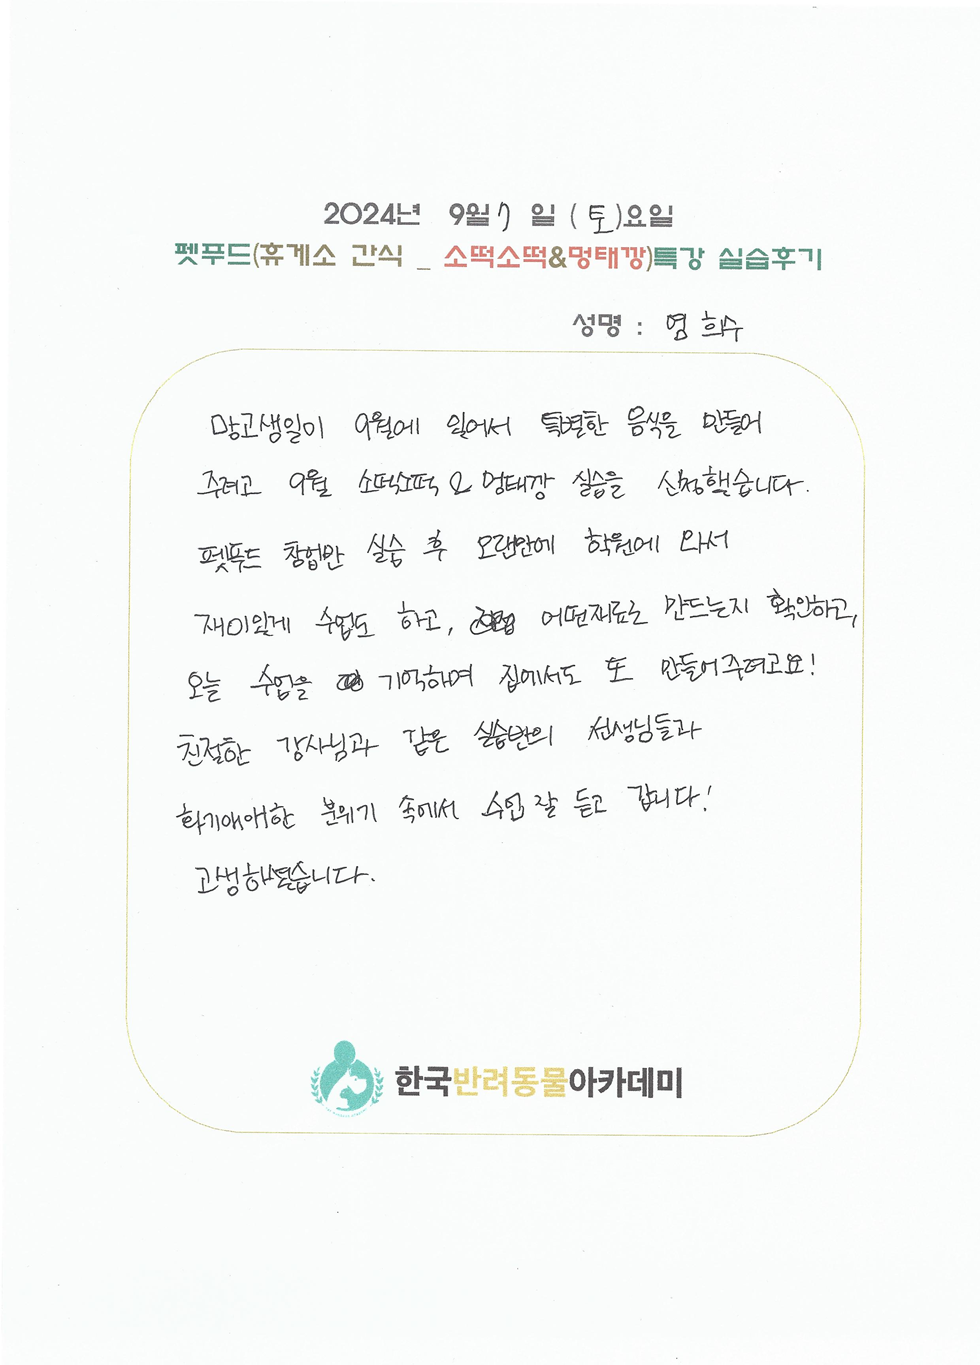 2024년 9월 7 일 (토)요일
펫푸드(휴게소 간식 _ 소떡소떡&멍태깡)특강 실습후기
성명 : 염희수
망고생일이 9월에 있어서 특별한 음식을 만들어
주려고 9월 소떡소떡 & 멍태깡 실습을 신청했습니다.
펫푸드 창업반 실습 후 오랜만에 학원에 와서
재미있게 수업도 하고, 어떤재료로 만드는지 확인하고,
오늘 수업을 기억하며 집에서도 또 만들어주려고요!
친절한 강사님과 같은 실습반의 선생님들과
화기애애한 분위기 속에서 수업 잘 듣고 갑니다!
고생하셨습니다.
한국반려동물아카데미